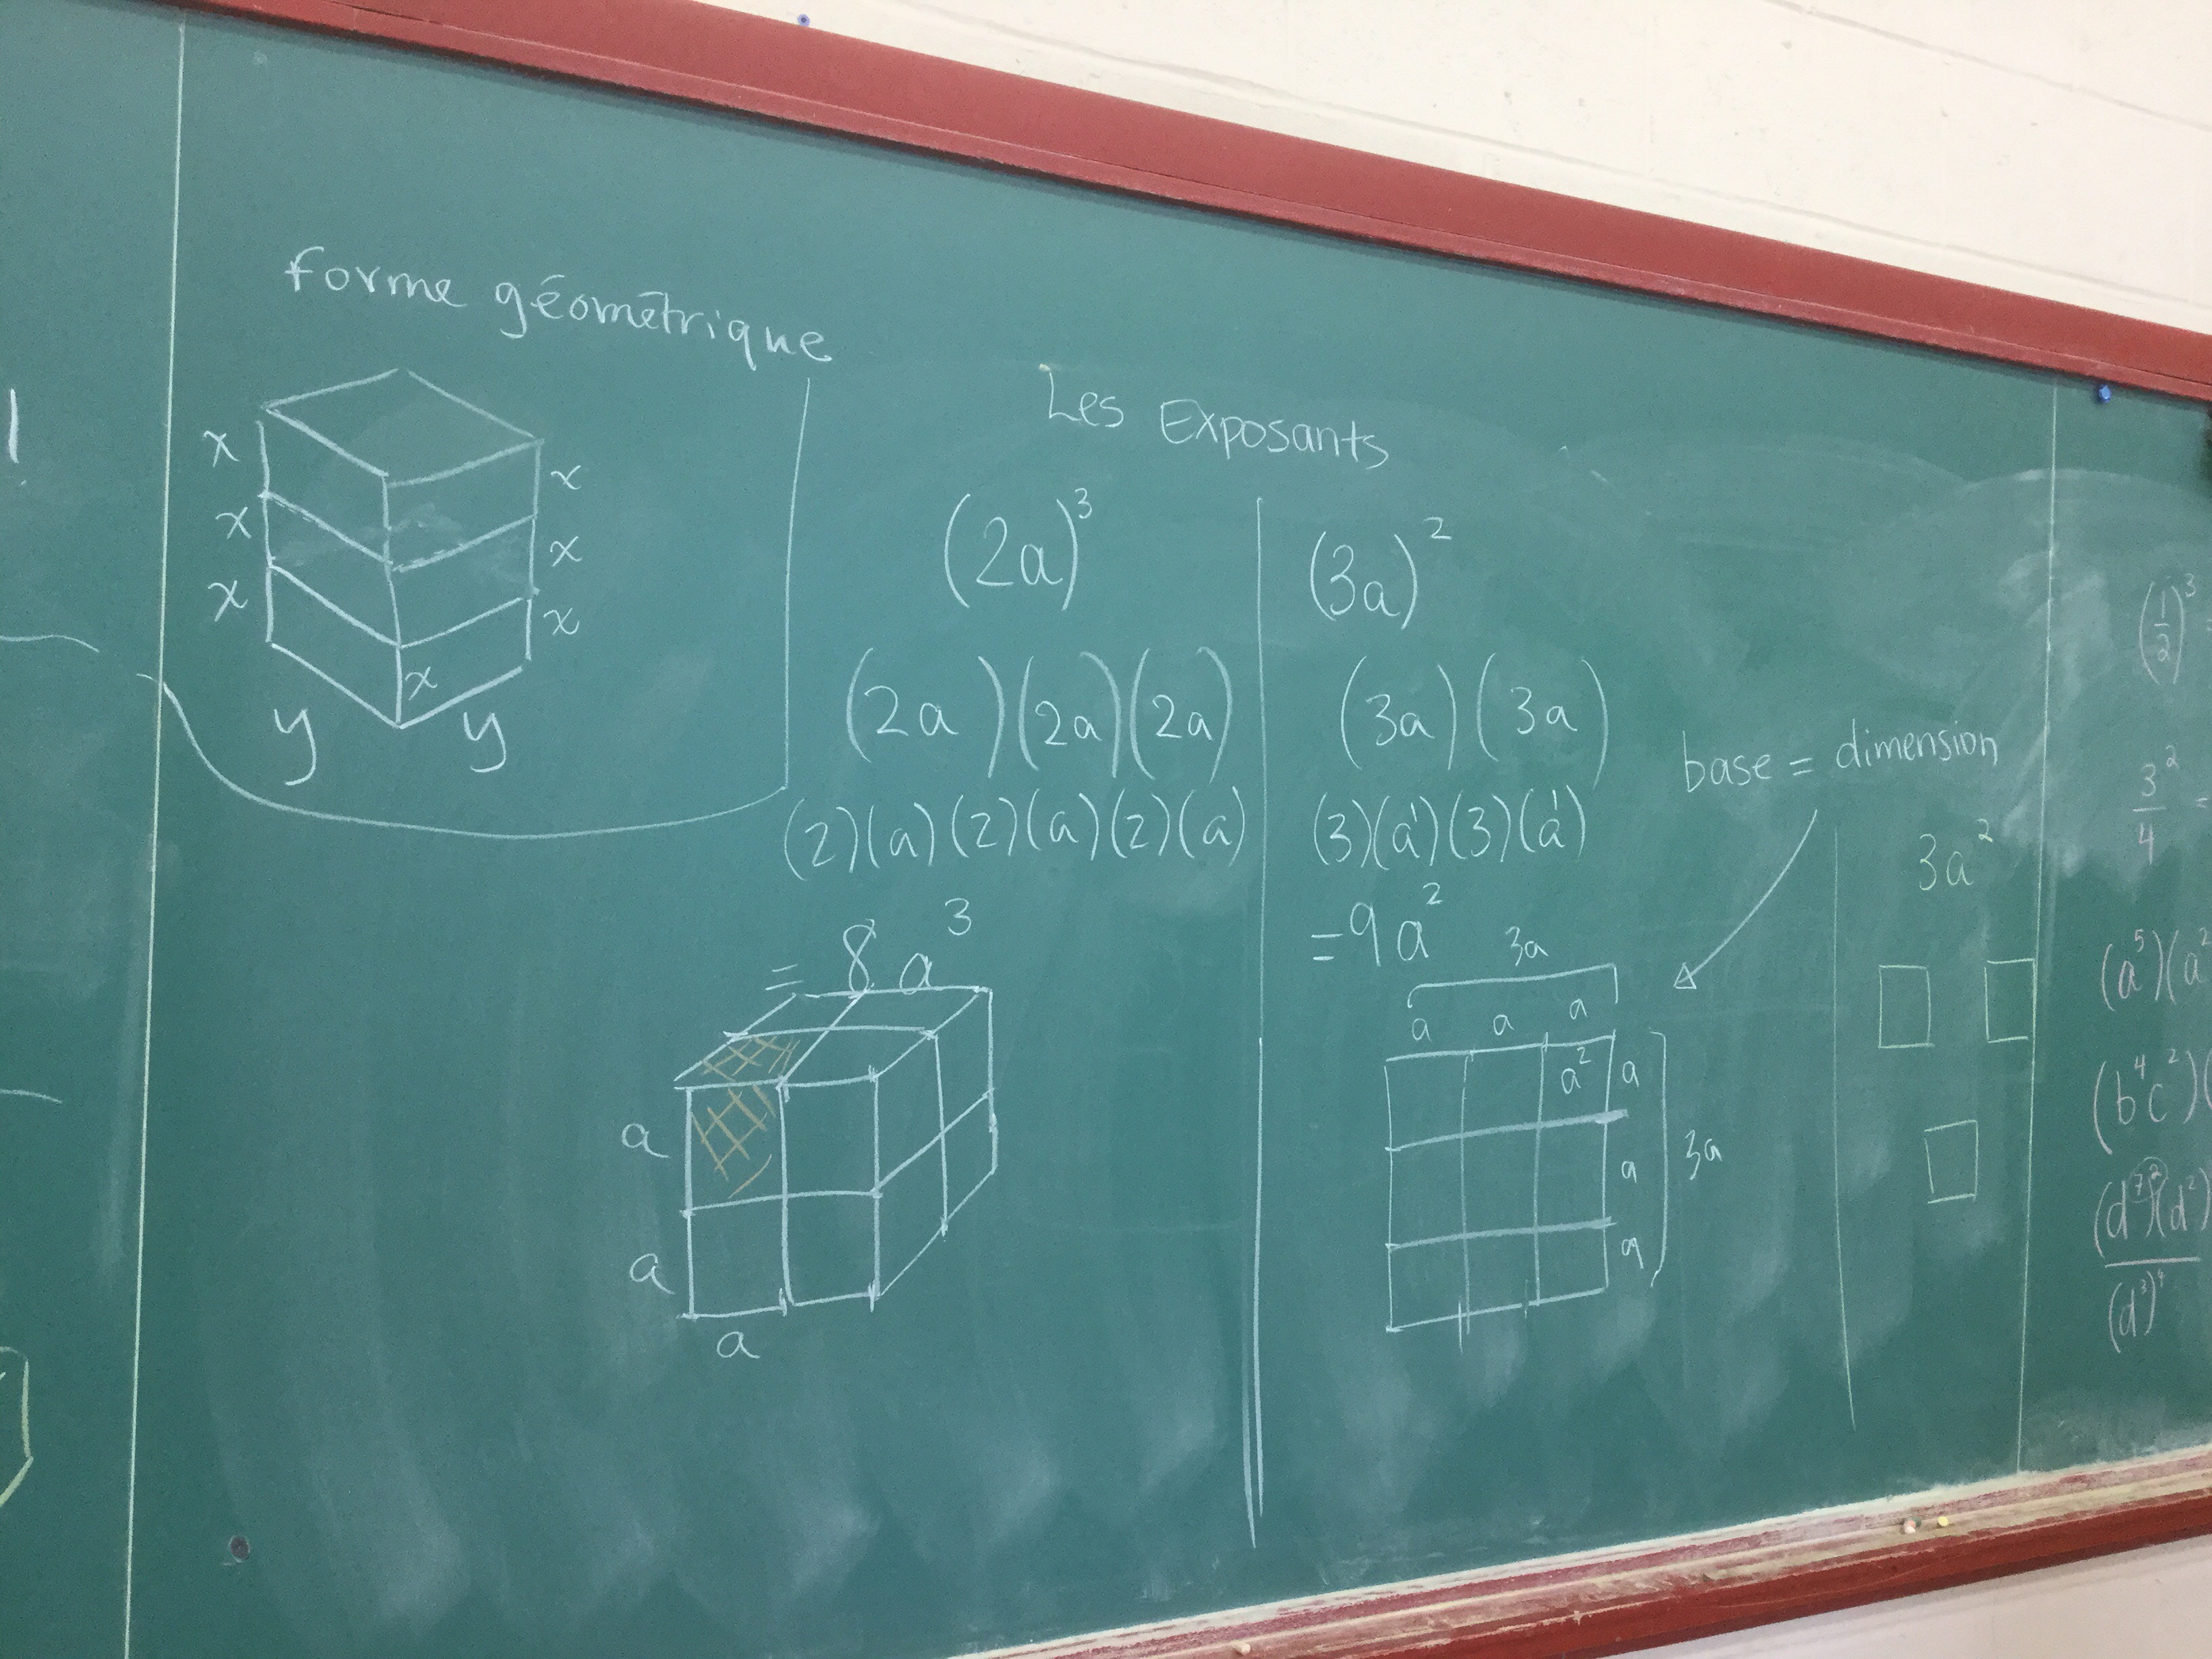 forme géométrique
x
x
x
x
x
x
x
y y
Les Exposants
(2a)³
(2a)(2a)(2a)
(2)(a)(2)(a)(2)(a)
= 8a³
a
a
a
(3a)²
(3a)(3a)
(3)(a¹)(3)(a¹)
= 9a²
3a
a a a
a² a
a
a
3a
base = dimension
3a²
(1/2)³ =
3²/4 =
(a⁵)(a²
(b⁴c²)(
(d⁷)²(d²)
(d³)⁴